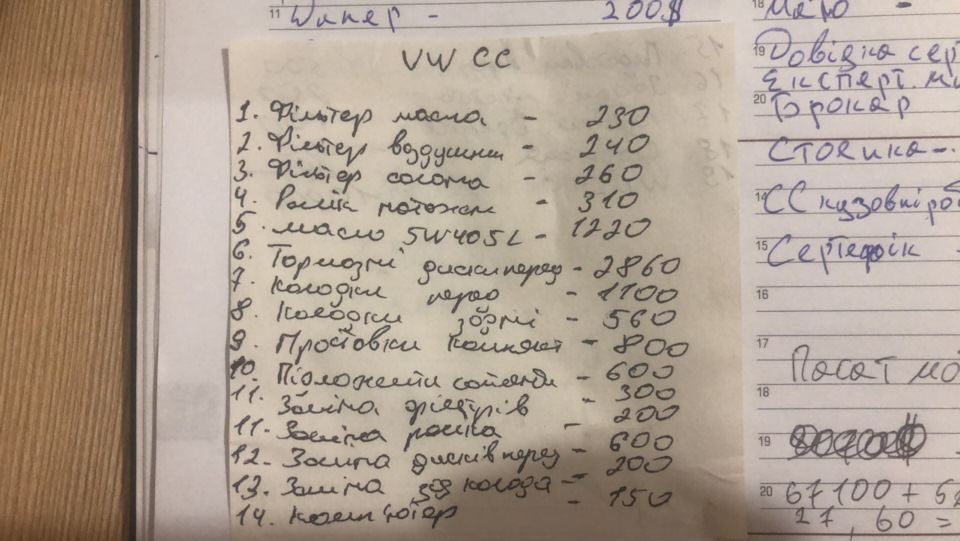 11 Шкер - 200$
VW CC
1. Фільтер масла - 230
2. Фільтер воздушний - 240
3. Фільтер салона - 260
4. Ролік натяжний - 310
5. масло 5W40 5L - 1220
6. Тормозні диски перед - 2860
7. Колодки перед - 1100
8. Колодки задні - 560
9. Проставки комплект - 800
10. - 600
11. Заміна фільтрів - 300
11. Заміна роліка - 200
12. Заміна дисків перед - 600
13. Заміна зад колодо - 200
14. Комп'ютер - 150
18
19 Довідка серт
Експерт. ми
20 Брокар
Стоянка -
14 CC кузовні роб
15 Сертефік -
16
17
Пасат мо
18
19
20 67100 +
27, 60 =